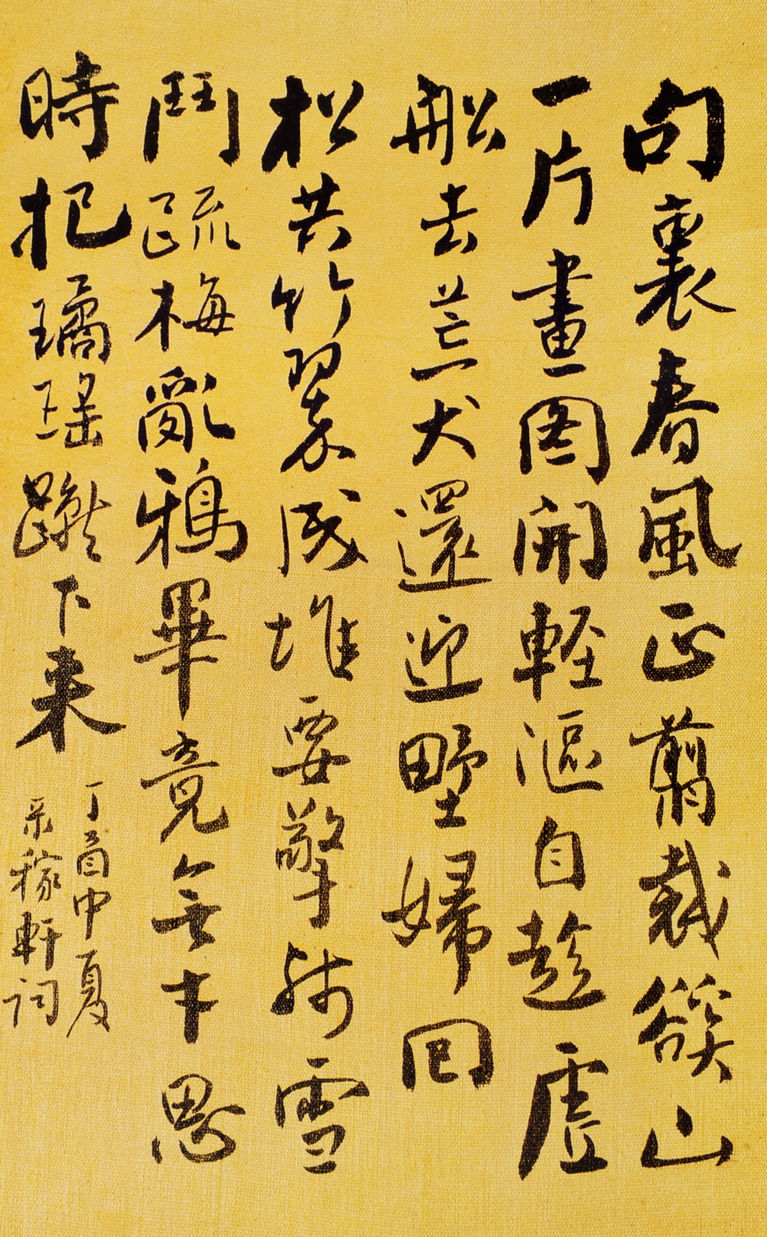 句裏春風正翦裁谿山
一片畫图開軽漚自趁虛
船去荒犬還迎野婦回
松共竹翠成堆要擎残雪
鬥疏梅亂鴉畢竟無才思
時把璚瑶蹴下来
丁酉中夏
录稼軒词